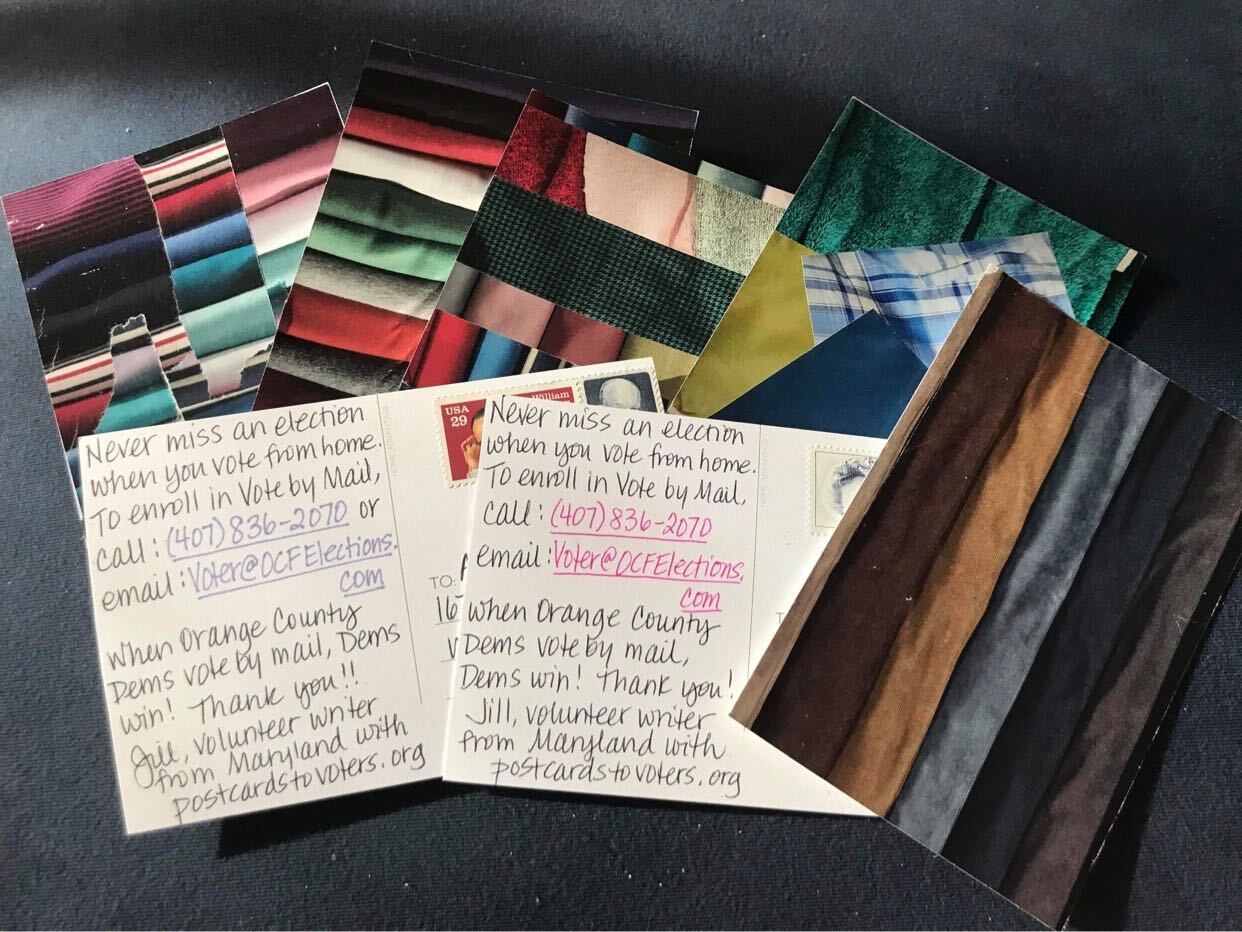 Never miss an election
when you vote from home.
To enroll in Vote by Mail,
call: (407) 836-2070 or
email: Voter@OCFElections.
com
When Orange County
Dems vote by mail, Dems
win! Thank you!!
Jill, volunteer writer
from Maryland with
postcardstovoters.org
USA
29
William
TO:
116
Never miss an election
when you vote from home.
To enroll in Vote by Mail,
call: (407) 836-2070
email: Voter@OCFElections.
com
When Orange County
Dems vote by mail,
Dems win! Thank you!
Jill, volunteer writer
from Maryland with
postcardstovoters.org